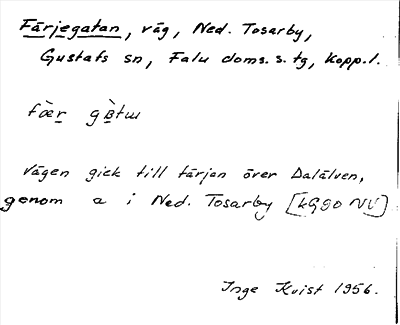 Färjegatan, väg, Ned. Tosarby,
Gustafs sn, Falu doms. s. tg, Kopp. l.
fæ̀r gàtɯ
Vägen gick till färjan över Dalälven,
genom a i Ned. Tosarby [kG90 NV]
Inge Kvist 1956.